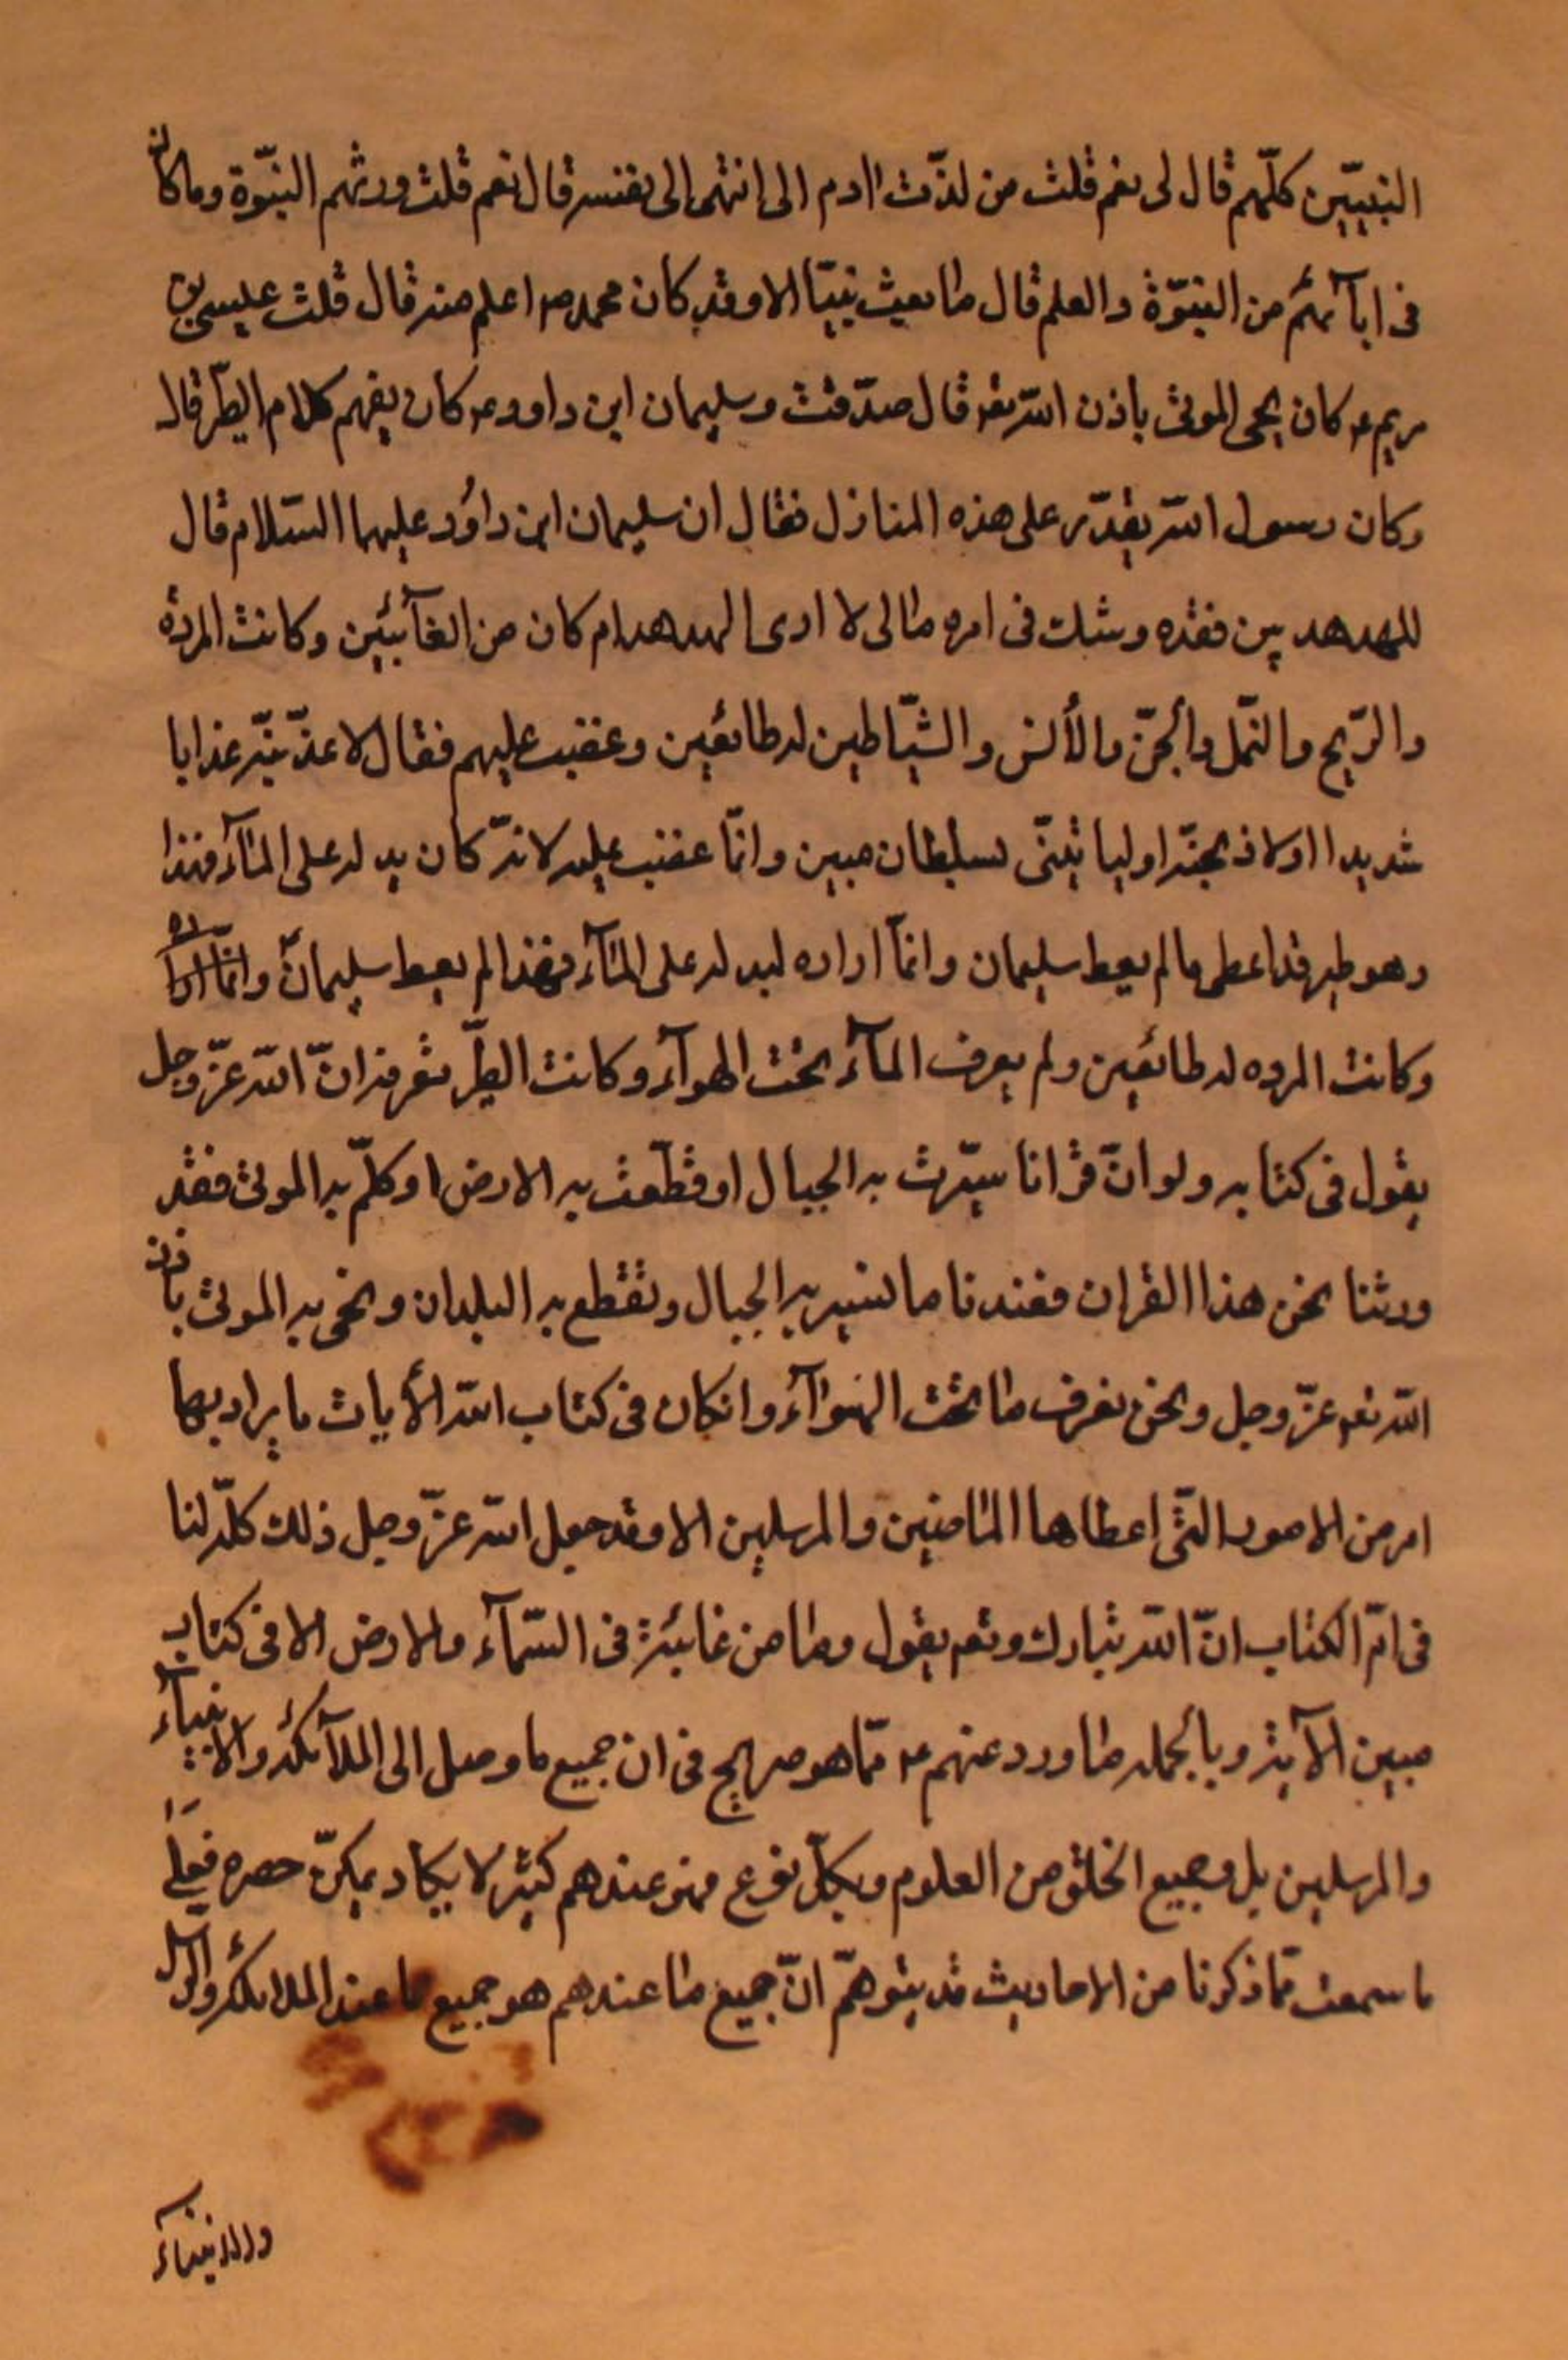 النبيّين كلّهم قال لى نعم قلت من لدّت اادم الى انتهى الى نفسه قال نعم قلت ورثهم النبّوة وماكان
فى ابآئهم من النبّوة والعلم قال ما بعث نبيّا الا وقد كان محمد ص اعلم منه قال قلت عيسى بن
مريم ع كان يحيى الموتى باذن الله تع قال صدّقت وسليمان ابن داوود ع كان يفهم كلام الطّير قال
وكان رسول الله يقدّر على هذه المنازل فقال ان سليمان ابن داؤد عليهما السّلام قال
للهدهد حين فقده وشك فى امره مالى لا ارى الهدهد ام كان من الغآئبين وكانت المردة
والرّيح والنّمل والجنّ والأنس والشيّاطين له طائعين وغضب عليهم فقال لاعذّبنّه عذابا
شديدا اولاذبحنّه اوليا تينّى بسلطان مبين وانّما غضب عليه لانّه كان يدله على المآء فهذا
وهو طير قد اعطى مالم يعط سليمان وانمّا اراده ليدله على المآء فهذا لم يعط سليمان وانمّا اراده
وكانت المرده له طائعين ولم يعرف المآء تحت الهوآء وكانت الطّير تعرفه انّ الله عزّ وجل
يقول فى كتابه ولو انّ قرانا سيّرت به الجبال اوقطّعت به الارض اوكلّم به الموتى فقد
ورثنا نحن هذا القران فعندنا ما نسير به الجبال ونقطع به البلدان ونحيى به الموتى باذن
الله تع عزّ وجل ونحن نعرف ما تحت الهوآء وانكان فى كتاب الله الأيات ما يراد بها
امر من الامور الّتى اعطاها الماضين والمرسلين الا وقد جعل الله عزّ وجل ذلك كلّه لنا
فى امّ الكتاب انّ الله تبارك وتع يقول وما من غائبة فى السّمآء والارض الا فى كتاب
مبين الآية وبالجمله ما ورد عنهم ع ممّا هو صريح فى ان جميع ما وصل الى الملآئكة والانبيآء
والمرسلين بل وجميع الخلق من العلوم وبكلّ نوع فهو عندهم كثير لا يكاد يمكنّ حصره فعلى
ما سمعت ممّا ذكرنا من الاحاديث قد يتوهمّ انّ جميع ما عندهم هو جميع ما عند الملائكة والرسل
والانبيآء